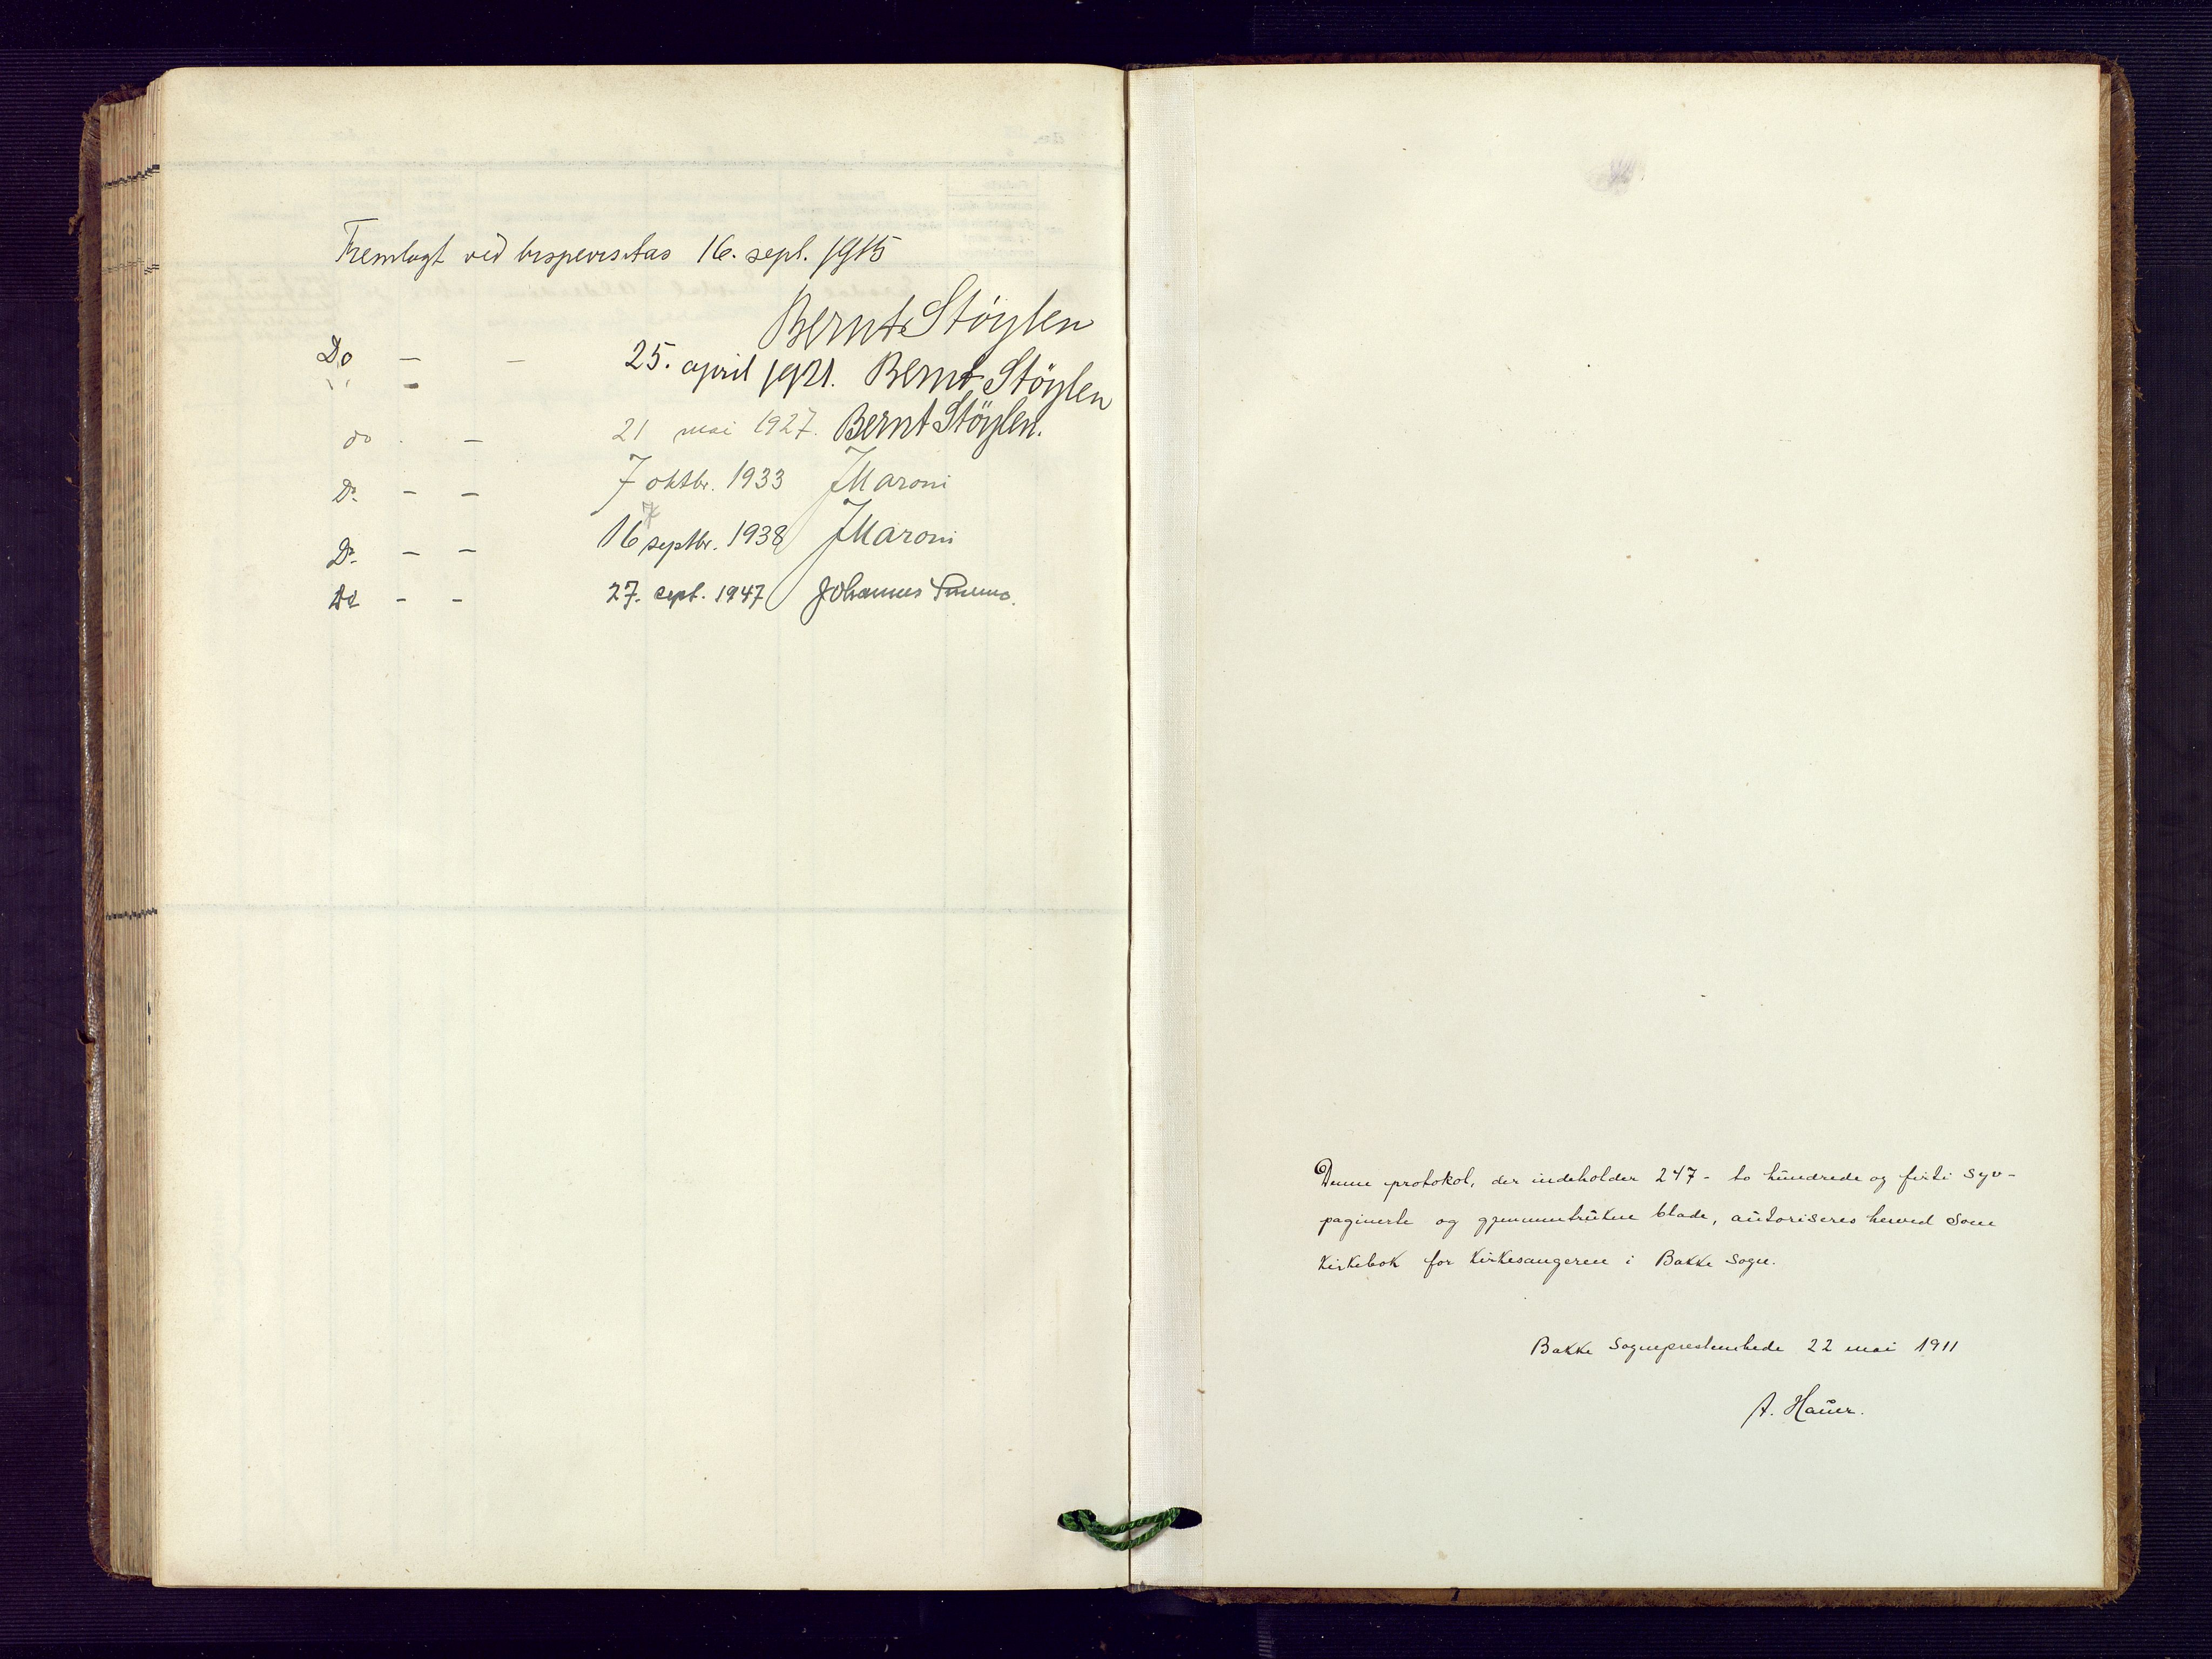 Fremlagt ved bispevisitas 16. sept. 1915
Bernt Støylen
Do — — 25. april 1921. Bernt Støylen
do — 21 mai 1927. Bernt Støylen.
Do — — 7 oktbr. 1933 JMaroni
Do — — 16 septbr. 1938 JMaroni
Do - - 27. sept. 1947 Johannes Smemo.
Denne protokol, der indeholder 247 - to hundrede og firti syv -
paginerte og gjennemtrukne blade, autoriseres herved som
Kirkebok for Kirkesangeren i Bakke sogn.
Bakke Sogneprestembede 22 mai 1911
A. Hauer.